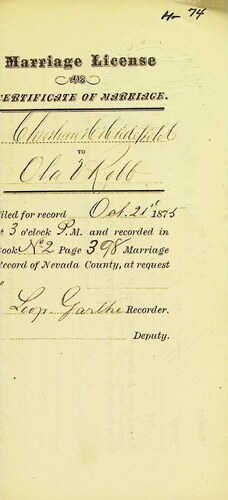 4- 74
Marriage License
AND
CERTIFICATE OF MARRIAGE.
TO
Ola V Kolb
iled for record Oct. 21st 1875
t 3 o'clock P.M. and recorded in
ook No 2 Page 398 Marriage
Record of Nevada County, at request
Leop. Garthe Recorder.
Deputy.